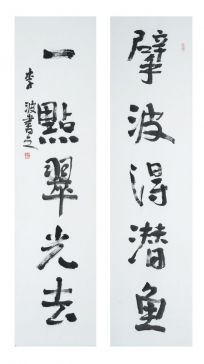 擘波得潜鱼
一點翠光去
李波書之